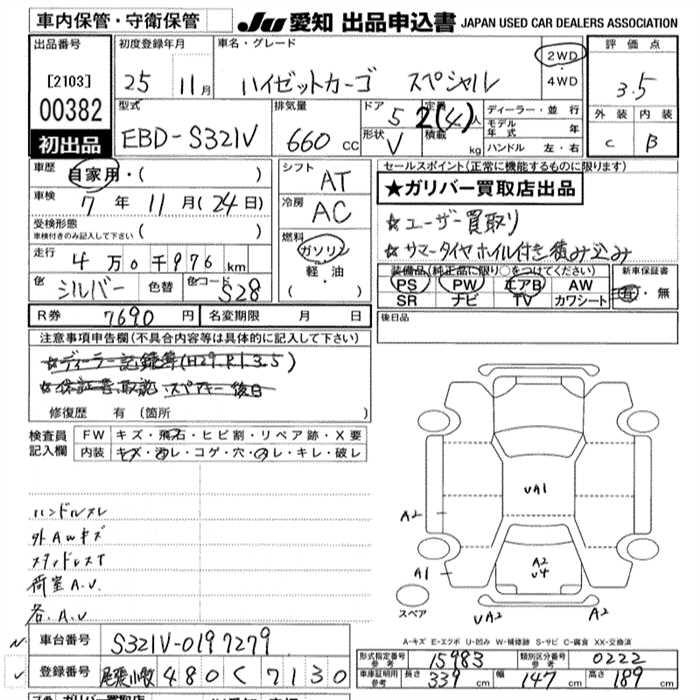 車内保管・守衛保管 JU 愛知 出品申込書 JAPAN USED CAR DEALERS ASSOCIATION
出品番号 初度登録年月 車名・グレード 2WD 4WD 評価点
[2103] 25 11月 ハイゼットカーゴ スペシャル 3.5
00382 型式 排気量 ドア 5 定員 2(4)人 ディーラー・並行 外装 内装
初出品 EBD-S321V 660 cc 形状 V 積載 kg モデル年式 年 C B
ハンドル 左・右
車歴 自家用・( ) シフト AT セールスポイント(正常に機能するものに限ります)
車検 7年11月(24日) 冷房 AC ★ガリバー買取店出品
受検形態 車検付きのみ記入して下さい ( ) ☆ユーザー買取り
走行 4万0千976km 燃料 ガソリン 軽油 ( ・ ) ☆サマータイヤホイル付き積み込み
色 シルバー 色替 色コード S28 装備品(純正品に限り○をつけてください) 新車保証書
PS PW エアB AW 有・無
SR ナビ TV カワシート
R券 7690円 名変期限 月 日 後日品
注意事項申告欄(不具合内容等は具体的に記入して下さい)
☆ディーラー記録簿(H29.R1.3.5)
☆保証書、取説 スペアキー後日
修復歴 有 (箇所 )
検査員記入欄 FW キズ・飛石・ヒビ割・リペア跡・X要
内装 キズ・汚レ・コゲ・穴・スレ・キレ・破レ
UA1
ハンドルスレ
外AWキズ A2
スタッドレスT A2 U4
荷室A.U. A1
各.A.U スペア UA2 A2
A-キズ E-エクボ U-凹み W-補修跡 S-サビ C-腐食 XX-交換済
車台番号 S321V-0197279
登録番号 尾張小牧 480 く 7130
形式指定番号 参考 15983 類別区分番号 参考 0222
車庫証明用 参考 長さ 339 cm 幅 147 cm 高さ 189 cm
ガリバー買取店